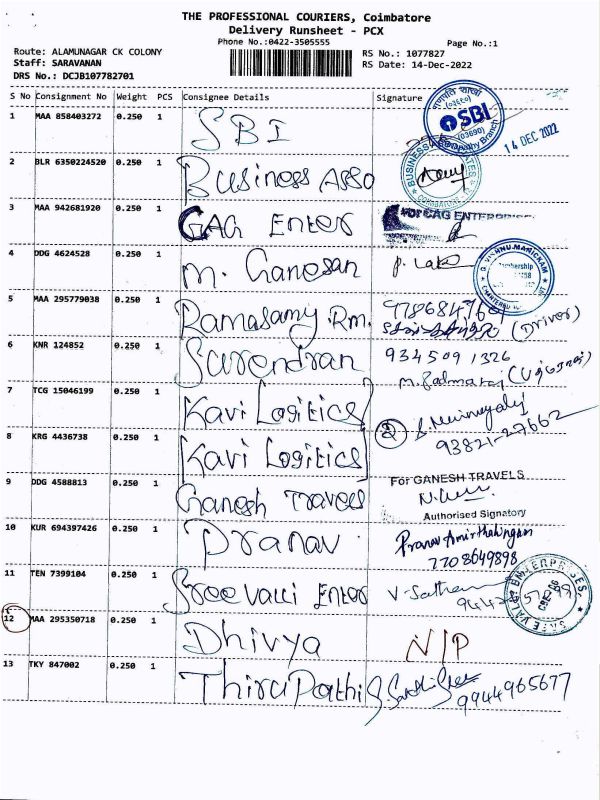 THE PROFESSIONAL COURIERS, Coimbatore
Delivery Runsheet - PCX
Phone No.:0422-3505555
Page No.:1
Route: ALAMUNAGAR CK COLONY
Staff: SARAVANAN
DRS No.: DCJB107782701
RS No.: 1077827
RS Date: 14-Dec-2022
S No Consignment No Weight PCS Consignee Details Signature
1 MAA 858403272 0.250 1 SBI
SBI
(03690)
14 DEC 2022
2 BLR 6350224520 0.250 1 Business Asso
3 MAA 942681920 0.250 1 GAG Enter
For GAG ENTERPRISES
4 DDG 4624528 0.250 1 M. Ganesan
G. VISHNU MANICKAM
5 MAA 295779038 0.250 1 Ramasamy Rm.
(Driver)
6 KNR 124852 0.250 1 Surendran 934509 1326
7 TCG 15046199 0.250 1 Kavi Logitics
8 KRG 4436738 0.250 1 Kavi Logitics
② 93821-27662
9 DDG 4588813 0.250 1 Ganesh Travels
For GANESH TRAVELS
Authorised Signatory
10 KUR 694397426 0.250 1 Pranav
Pranav Amirthalingam
7708649898
11 TEN 7399104 0.250 1 Sree Valli Enter
12 MAA 295350718 0.250 1 Dhivya N/P
13 TKY 847002 0.250 1 Thirupathi
9944965677